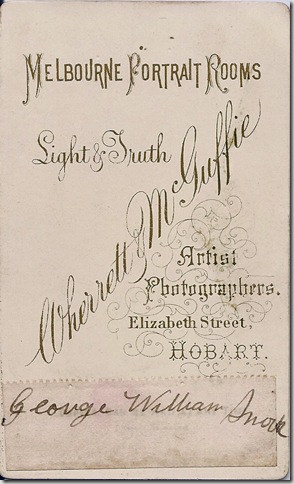 MELBOURNE PORTRAIT ROOMS
Light & Truth
Wherrett & McGuffie
Artist
Photographers.
Elizabeth Street,
HOBART.
George William Snook